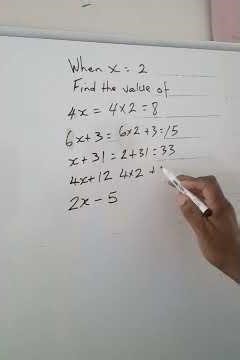 When x = 2
Find the value of
4x = 4×2 = 8
6x+3 = 6×2+3=15
x+31 = 2+31 = 33
4x+12 4×2 +
2x - 5